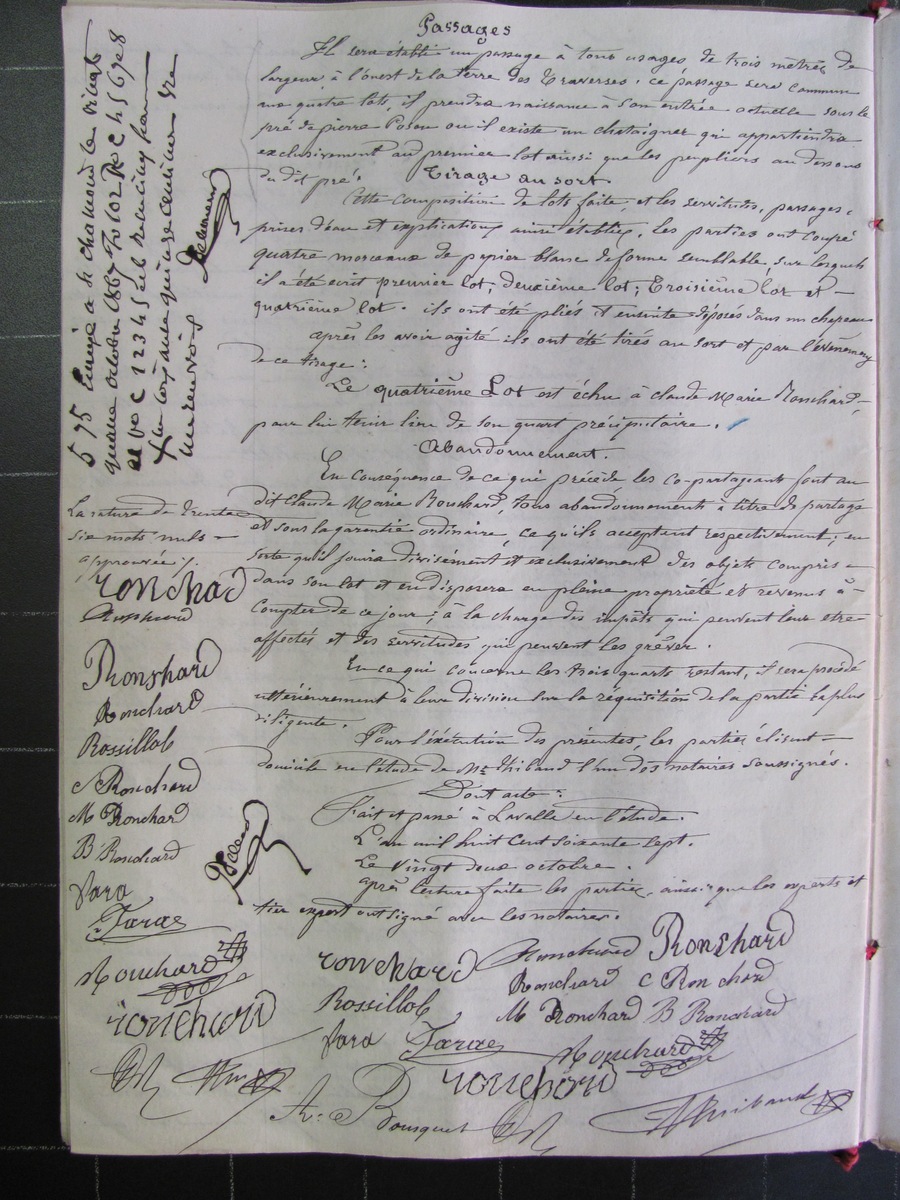 Passages
Il sera établi un passage à tous usages de trois mètres de
largeur, à l'ouest de la terre des Traverses. ce passage sera commun
aux quatre lots, il prendra naissance à son entrée actuelle sous le
pré de pierre où il existe un chataigner qui appartiendra
exclusivement au premier lot ainsi que les peupliers au dessous
du dit pré.
Tirage au sort.
Cette composition de lots faite, et les servitudes, passages,
prises d'eau et explications ainsi établies, les parties ont coupé
quatre morceaux de papier blanc de forme semblable, sur lesquels
il a été écrit premier lot; deuxième lot; Troisième lot et
quatrième lot. ils ont été pliés et ensuite déposés dans un chapeau
après les avoir agité ils ont été tirés au sort et par l'évènement
de ce tirage:
Le quatrième Lot est échu à claude Marie Ronchard,
pour lui tenir lieu de son quart préciputaire.
Abandonnement.
En conséquence de ce qui précède les co-partageants font au
dit Claude Marie Ronchard, tous abandonnements à titre de partage
et sous la garantie ordinaire, ce qu'ils acceptent respectivement; en
sorte qu'il jouira divisément et exclusivement des objets compris
dans son lot et en disposera en pleine propriété et revenus à
compter de ce jour; à la charge des impôts qui peuvent leur etre
affectés et des servitudes qui peuvent les gréver.
En ce qui concerne les trois quarts restant, il sera procédé
ultérieurement à leur division sur la réquisition de la partie la plus
diligente.
Pour l'exécution des présentes, les parties élisent
domicile en l'étude de Me Thibaud l'un des notaires soussignés.
Dont acte:
Fait et passé à Lavalle en l'étude.
L'an mil huit cent soixante sept.
Le vingt deux octobre.
après lecture faite les parties, ainsi que les experts et
tier expert ont signé avec les notaires.
ronchard Ronchard Ronchard
Rossillol Ronchard C Ronchard
M Ronchard B Ronchard
Vara Jaras Ronchard
ronchard
A. Bousquet Thibaud
La rature de trente
six mots nuls
approuvée.
ronchard
Ronchard
Ronchard
Ronchard
Rossillol
C Ronchard
M Ronchard
B Ronchard
Vara
Jaras
Ronchard
ronchard
595 à St chamond le vingt
octobre 1867 fo 102 Ro C 4 5 6 7 et 8
et Vo C 1 2 3 4 5